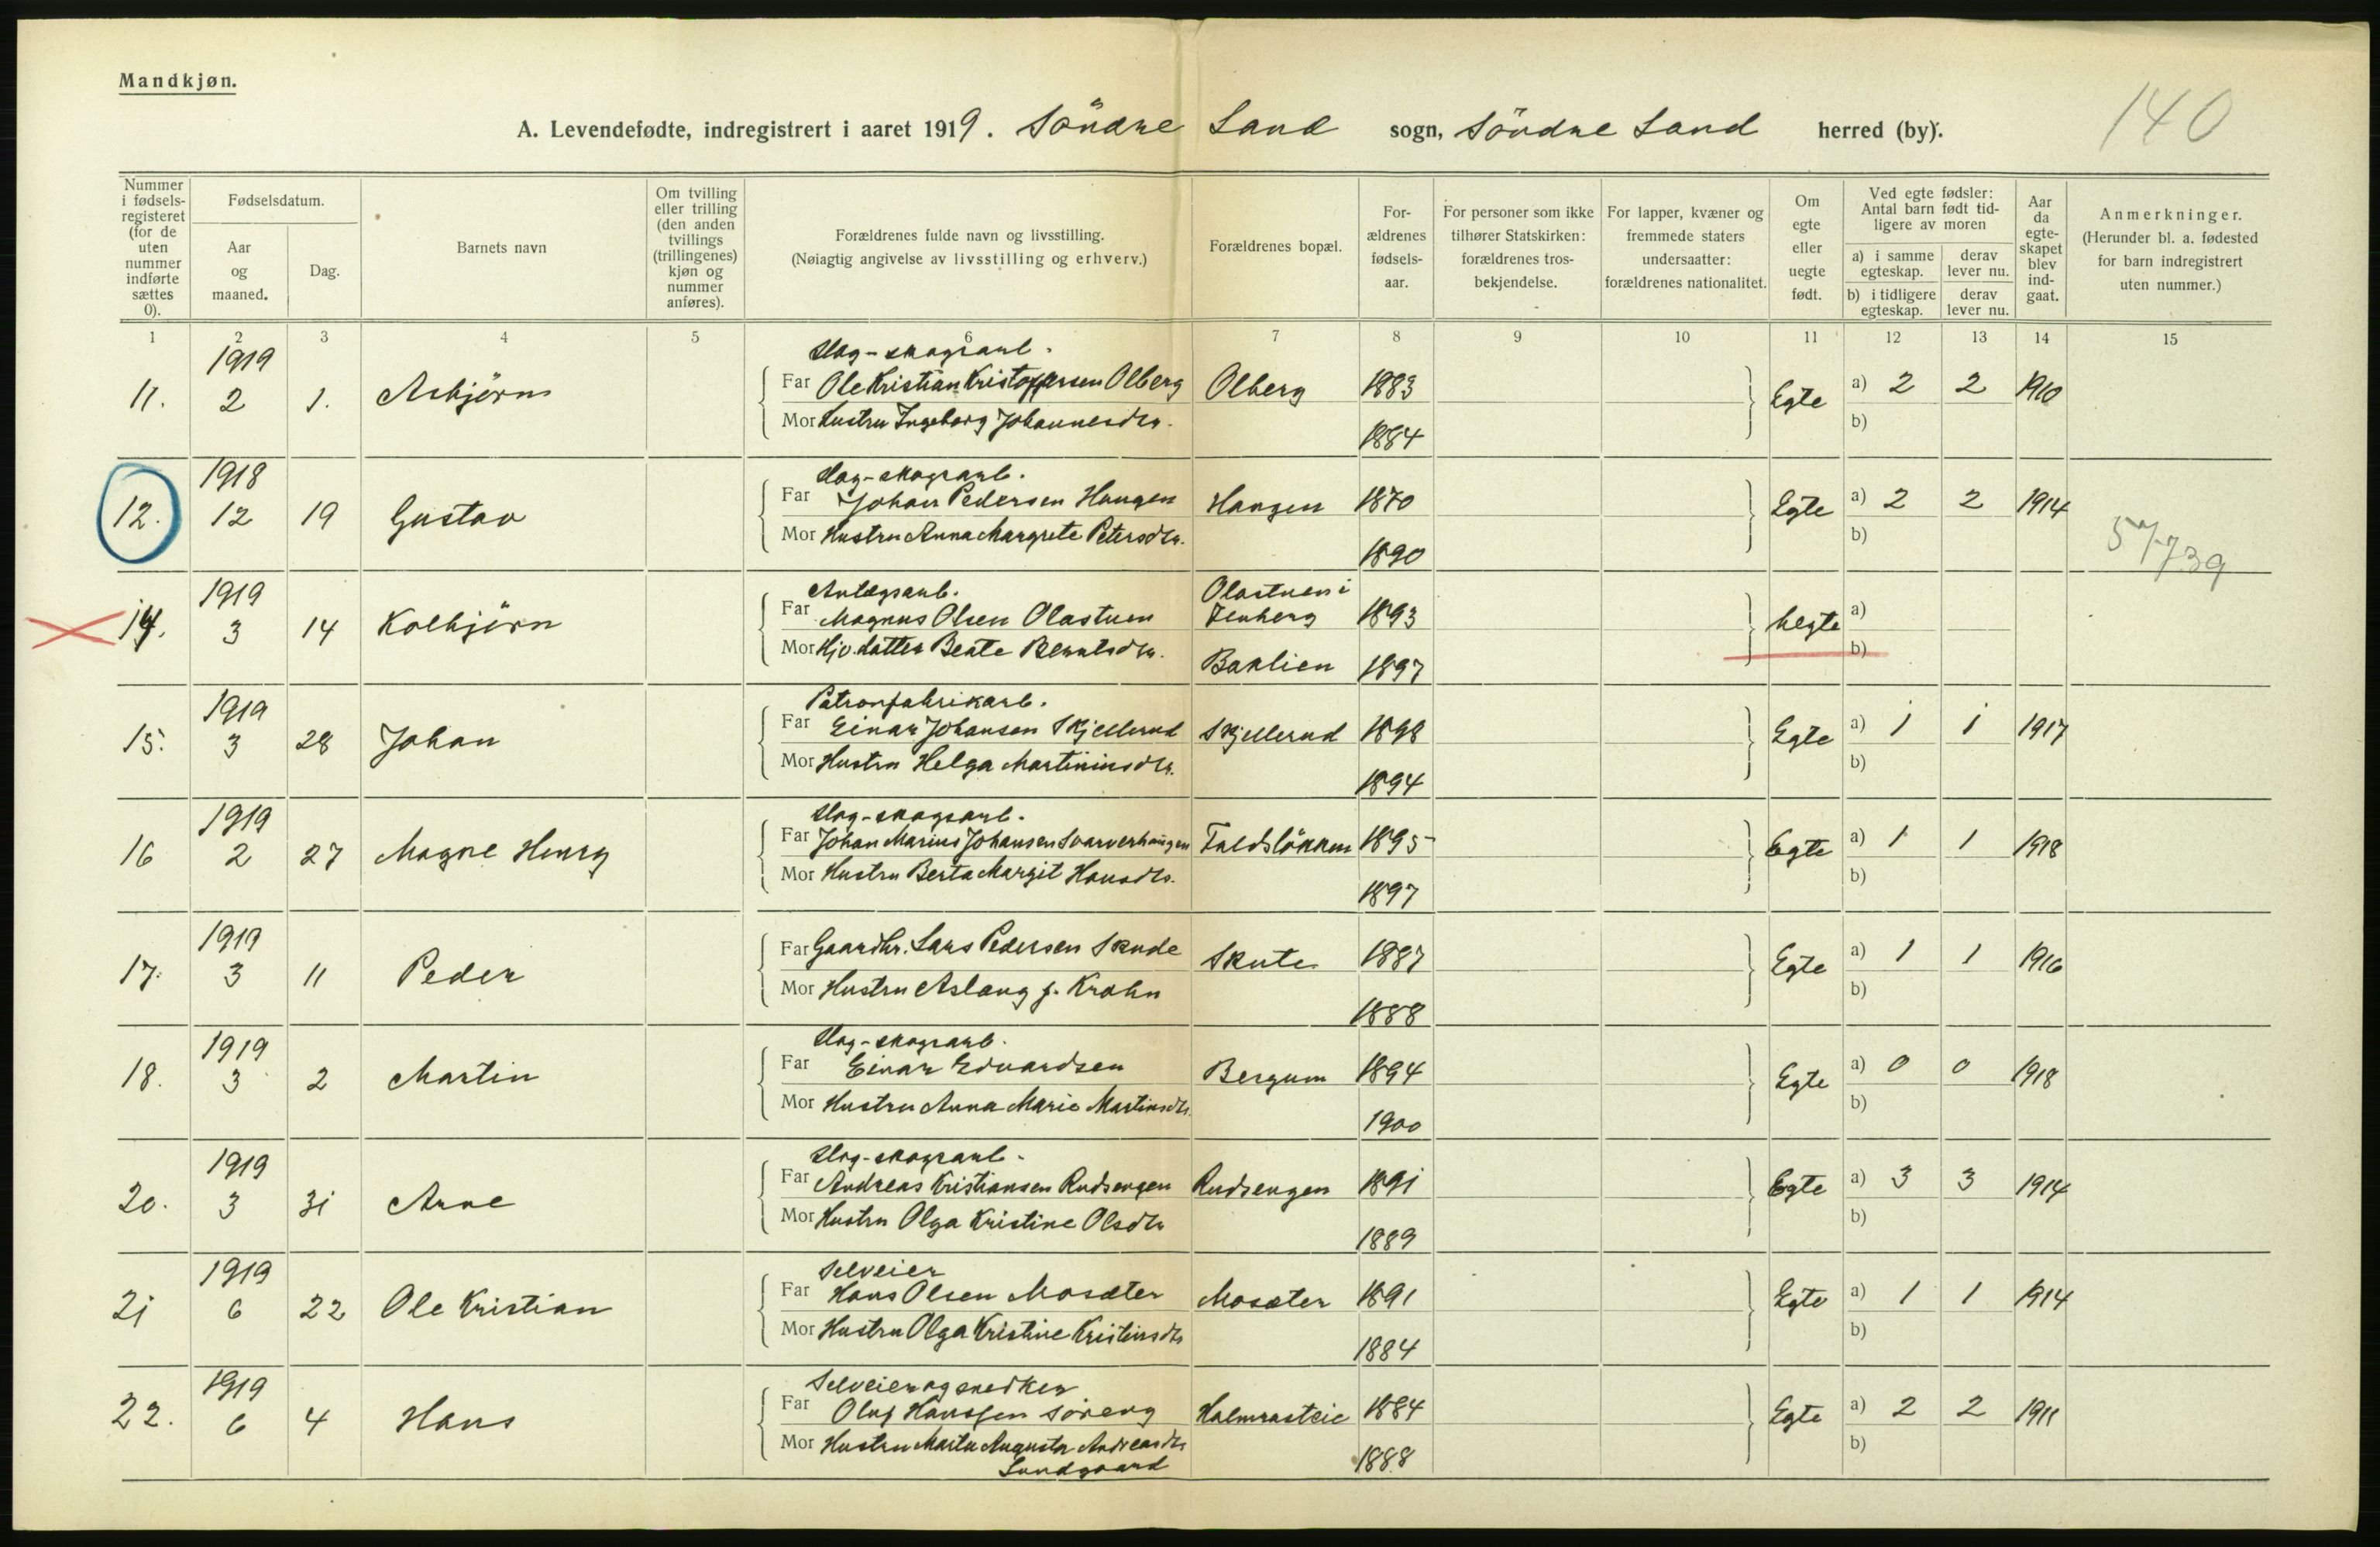 Mandkjøn.
140
A. Levendefødte, indregistrert i aaret 1919. Söndre Land sogn, Söndre Land herred (by).
Nummer i fødselsregisteret (for de uten nummer indførte sættes 0).
Fødselsdatum.
Aar og maaned.
Dag.
Barnets navn
Om tvilling eller trilling (den anden tvillings (trillingenes) kjøn og nummer anføres).
Forældrenes fulde navn og livsstilling.
(Nøiagtig angivelse av livsstilling og erhverv.)
Forældrenes bopæl.
Forældrenes fødselsaar.
For personer som ikke tilhører Statskirken: forældrenes trosbekjendelse.
For lapper, kvæner og fremmede staters undersaatter: forældrenes nationalitet.
Om egte eller uegte født.
Ved egte fødsler: Antal barn født tidligere av moren
a) i samme egteskap.
derav lever nu.
b) i tidligere egteskap.
derav lever nu.
Aar da egteskapet blev indgaat.
Anmerkninger.
(Herunder bl. a. fødested for barn indregistrert uten nummer.)
1 2 3 4 5 6 7 8 9 10 11 12 13 14 15
1919 Dag-skogsarb.
11. 2 1. Asbjörn Far Ole Kristian Kristoffersen Olberg Olberg 1883 Egte a) 2 2 1910
Mor Hustru Ingeborg Johannesdtr. 1884 b)
1918 Dag-skogsarb.
12. 12 19 Gustav Far Johan Pedersen Haugen Haugen 1870 Egte a) 2 2 1914
Mor Hustru Anna Margrete Petersdtr. 1890 b)
57739
1919 Anlægsarb. Olastuen i
14. 3 14 Kolbjörn Far Magnus Olsen Olastuen 1893 Uegte a)
Mor Hjv. datter Beate Berntsdtr. Baklien 1897 b)
1919 Patronfabrikarb.
15. 3 28 Johan Far Einar Johansen Skjellerud Skjellerud 1898 Egte a) 1 1 1917
Mor Hustru Helga Martiniusdtr. 1894 b)
1919 Dag-skogsarb.
16 2 27 Magne Henry Far Johan Marius Johansen Svarverhaugen 1895 Egte a) 1 1 1918
Mor Hustru Berta Margit Hansdtr. 1897 b)
1919
17. 3 11 Peder Far Gaardbr. Lars Pedersen Skute Skute 1887 Egte a) 1 1 1916
Mor Hustru Aslaug f. Krohn 1888 b)
1919 Dag-skogsarb.
18. 3 2 Martin Far Einar Edvardsen Bergum 1894 Egte a) 0 0 1918
Mor Hustru Anna Marie Martinsdtr. 1900 b)
1919 Dag-skogsarb.
20. 3 31 Arne Far Andreas Kristiansen Rudsengen Rudsengen 1891 Egte a) 3 3 1914
Mor Hustru Olga Kristine Olsdtr 1889 b)
1919 Selveier
21 6 22 Ole Kristian Far Hans Olsen Mosæter Mosæter 1891 Egte a) 1 1 1914
Mor Hustru Olga Kristine Kristinsdtr 1884 b)
1919 Selveier og snedker
22. 6 4 Hans Far Oluf Hanssen Söreng Holmrasteie 1884 Egte a) 2 2 1911
Mor Hustru Marta Augusta Andreasdtr 1888 b)
Lundgaard